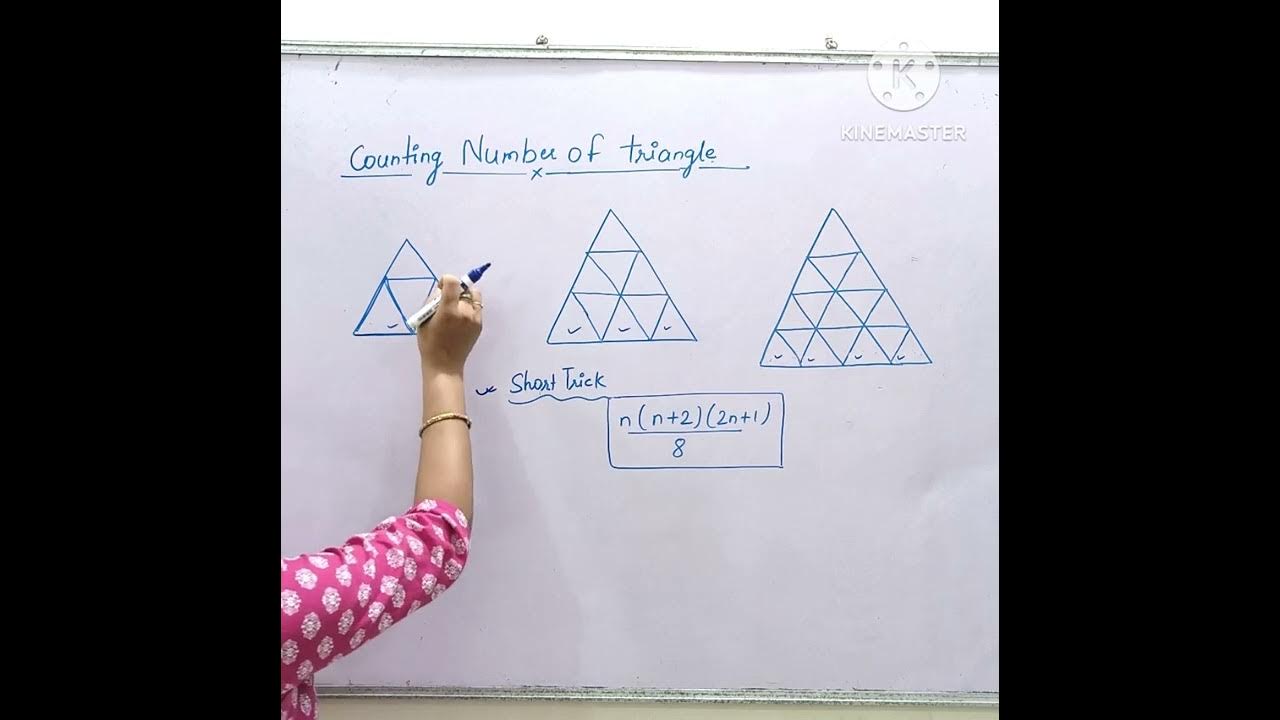 K
KINEMASTER
Counting Number of triangle
Short Trick
n(n+2)(2n+1)
8